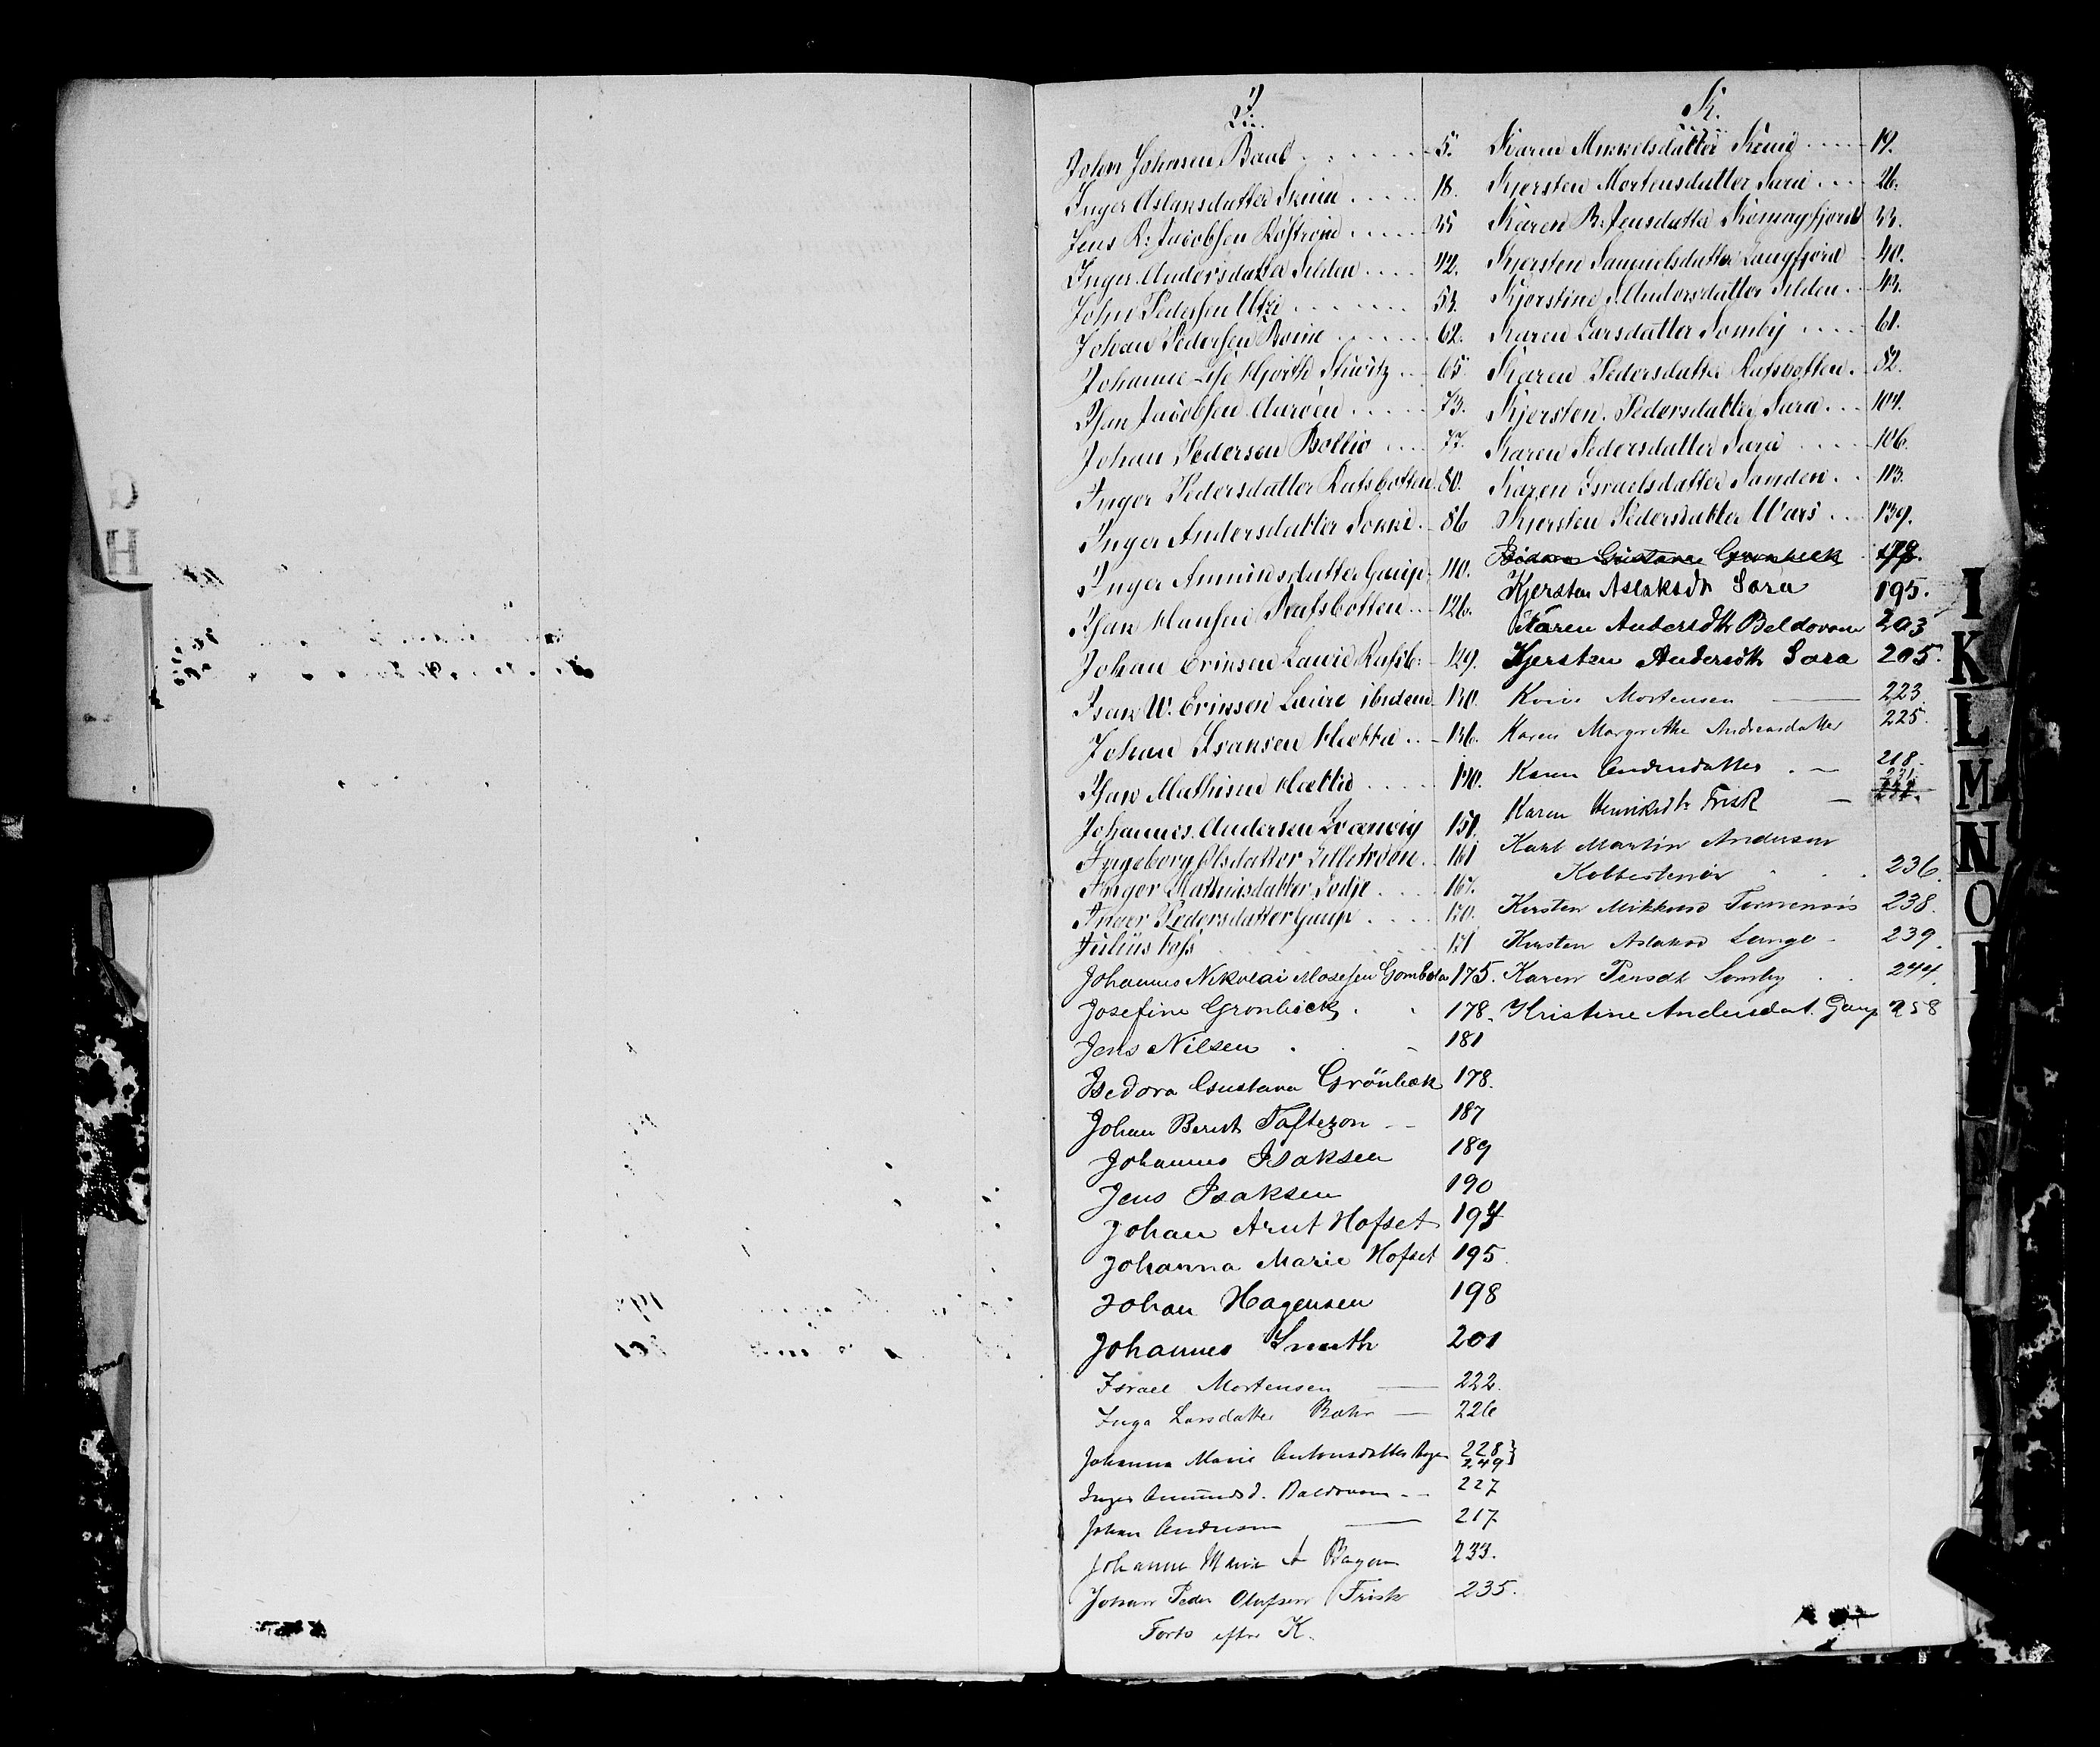 I.
John Johnsen Banb 5.
Inger Aslaksdatter Skum 18.
Jens R: Jacobsen Rostrøm 35
Inger Andersdatter Selden 42.
John Pedersen Utzi 53.
Johan Pedersen Boine 62.
Johanne Lise Hjorth Stuwitz 65
Isak Jacobsen Aarøen 73.
Johan Pedersen Boltio 77.
Inger Pedersdatter Rafsbotten 80.
Inger Andersdatter Sokki 86
Inger Ammundsdatter Gaup 110.
Isak Hansen Rafsbotten 126.
Johan Eriksen Lavie Rafsb: 129.
Isak W. Eriksen Laire ibidem 130.
Johan Isaksen Hætta 136.
Isak Mathisen Hætta 140.
Johannes Andersen Kvænvig 151.
Ingeborg Olsdatter Lilletroen 161
Inger Mathiasdatter Sodje 167.
Inger Pedersdatter Gaup 170.
Julius Foss 171
Johannes Nikolai Mosesen Gambola 175.
Josefine Grønbeck 178.
Jens Nilsen 181
Isedora Gustava Grönbek 178.
Johan Berut Taftezon 187
Johannes Isaksen 189
Jens Isaksen 190
Johan Arnt Hofset 194
Johanna Marie Hofset 195
Johan Hagensen 198
Johannes Smuth 201
Israel Mortensen 222.
Inga Larsdatter Bæhr 226
Johanna Marie Antonsdatter Bogen 228
249
Inger Amundsd. Baldovom 227
Johan Andersen 217
Johanne Marie A Bagen 233.
Johan Peder Olufsen Frisk 235.
Forts efter K.
K.
Karen Mikkelsdatter Kemi 19.
Kjersten Mortensdatter Sara 26.
Karen B. Jensdatter Komagfjord 33.
Kjersten Samuelsdatter Langfjord 40.
Kjerstine J. Andersdatter Selden 43.
Karen Larsdatter Somby 61.
Karen Pedersdatter Rafsbotten 82.
Kjersten Pedersdatter Sara 104.
Karen Pedersdatter Sara 106.
Karen Israelsdatter Sanden 113.
Kjersten Pedersdatter Wars 139.
Isidora Gustava Grønbeck 178.
Kjersten Aslaksdtr Sara 195.
Karen Andersdtr Beldovom 203
Kjersten Andersdtr Sara 205.
Koive Mortensen 223
Karen Margrethe Andreasdatter 225.
Karen Andersdatter 218.
231.
Karen Henriksdtr Frisk
Karl Martin Andersen
Kobbestenør 236.
Kirsten Mikkelsd Tornensis 238.
Kirsten Aslaksd Lango 239.
Karen Persdtr Somby 244.
Kristine Andersdat. Gaup 258
I
K
L
M
N
O
G
H